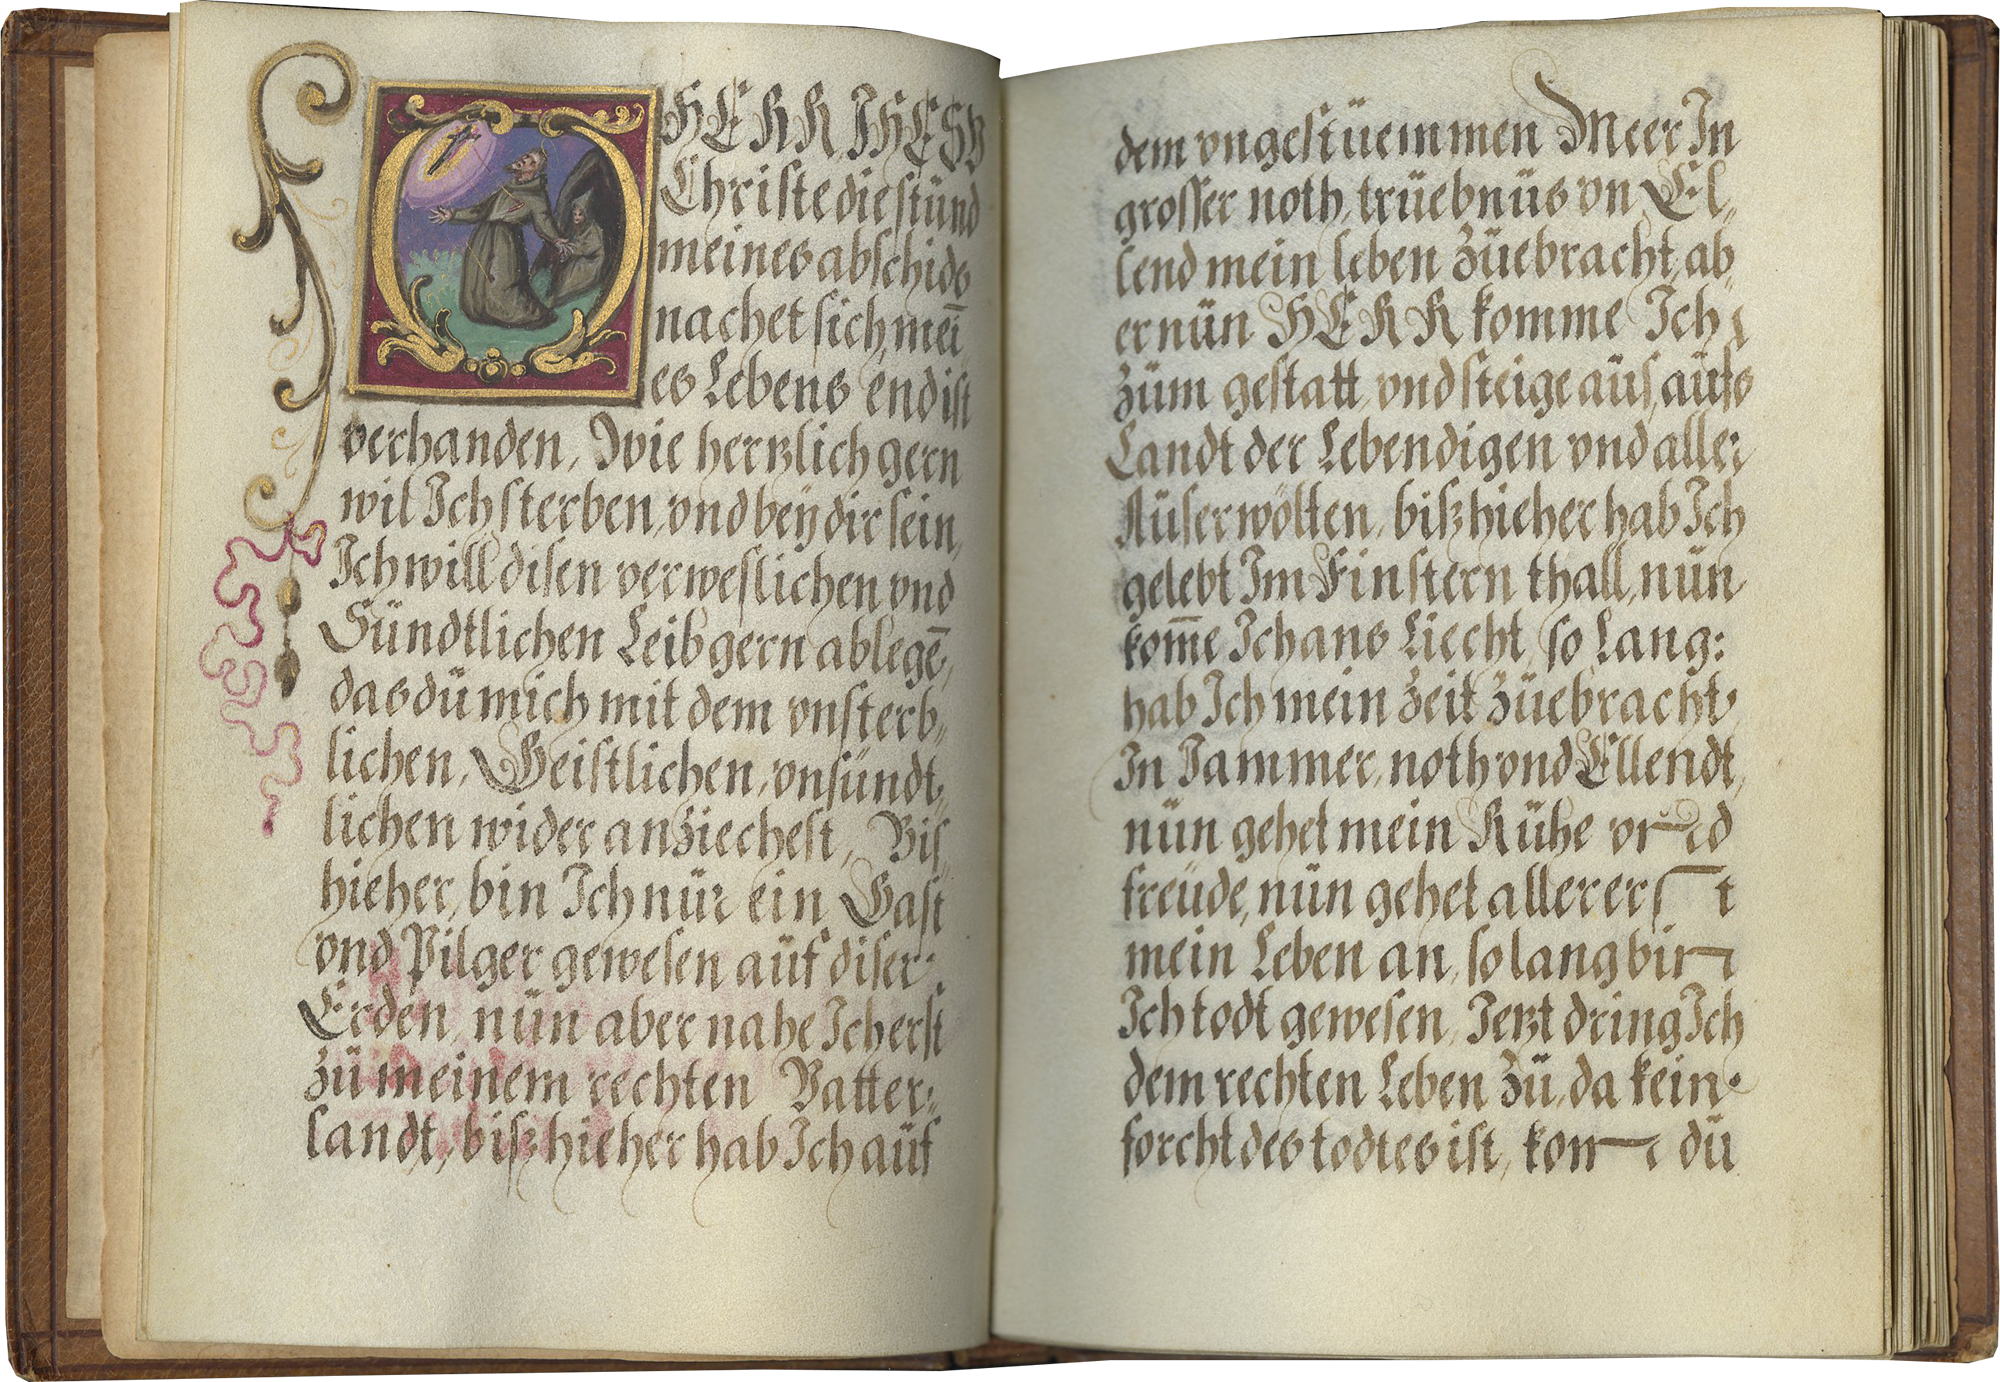 O HERR IHESV
Christe die stünd
meines abschids
nachet sich, mein̄
es Lebens end ist
verhanden, Wie hertzlich gern
wil Ich sterben, vnd beÿ dir sein,
Ich will disen verweslichen vnd
Sündtlichen Leib gern ablegē,
das dü mich mit dem vnsterb„
lichen, Geistlichen, vnsündt„
lichen wider anziechest, Bis„
hieher, bin Ich nür ein Gast
vnd Pilger gewesen aüf diser:
Erden, nün aber nahe Ich erst
zü meinem rechten Vatter„
landt, biß hieher hab Ich aüf
dem vngestüemmen Meer In
grosser noth, trüebnüs vn̄ El„
lend mein leben züebracht, ab
er nün HERR komme Ich
züm gestatt, vnd steige aüs, aüfs
Landt der Lebendigen vnd aller
Aüserwölten, biß hieher hab Ich
gelebt Im Finstern thall, nün
kom̄e Ich ans Liecht, so Lang:
hab Ich mein zeit züebracht,
In Jammer, noth vnd Ellendt,
nün gehet mein Rühe vnd
freüde, nün gehet allererst
mein Leben an, so lang bin
Ich todt gewesen, Jetzt dring Ich
dem rechten Leben zü, da kein
forcht des todtes ist, kom dü